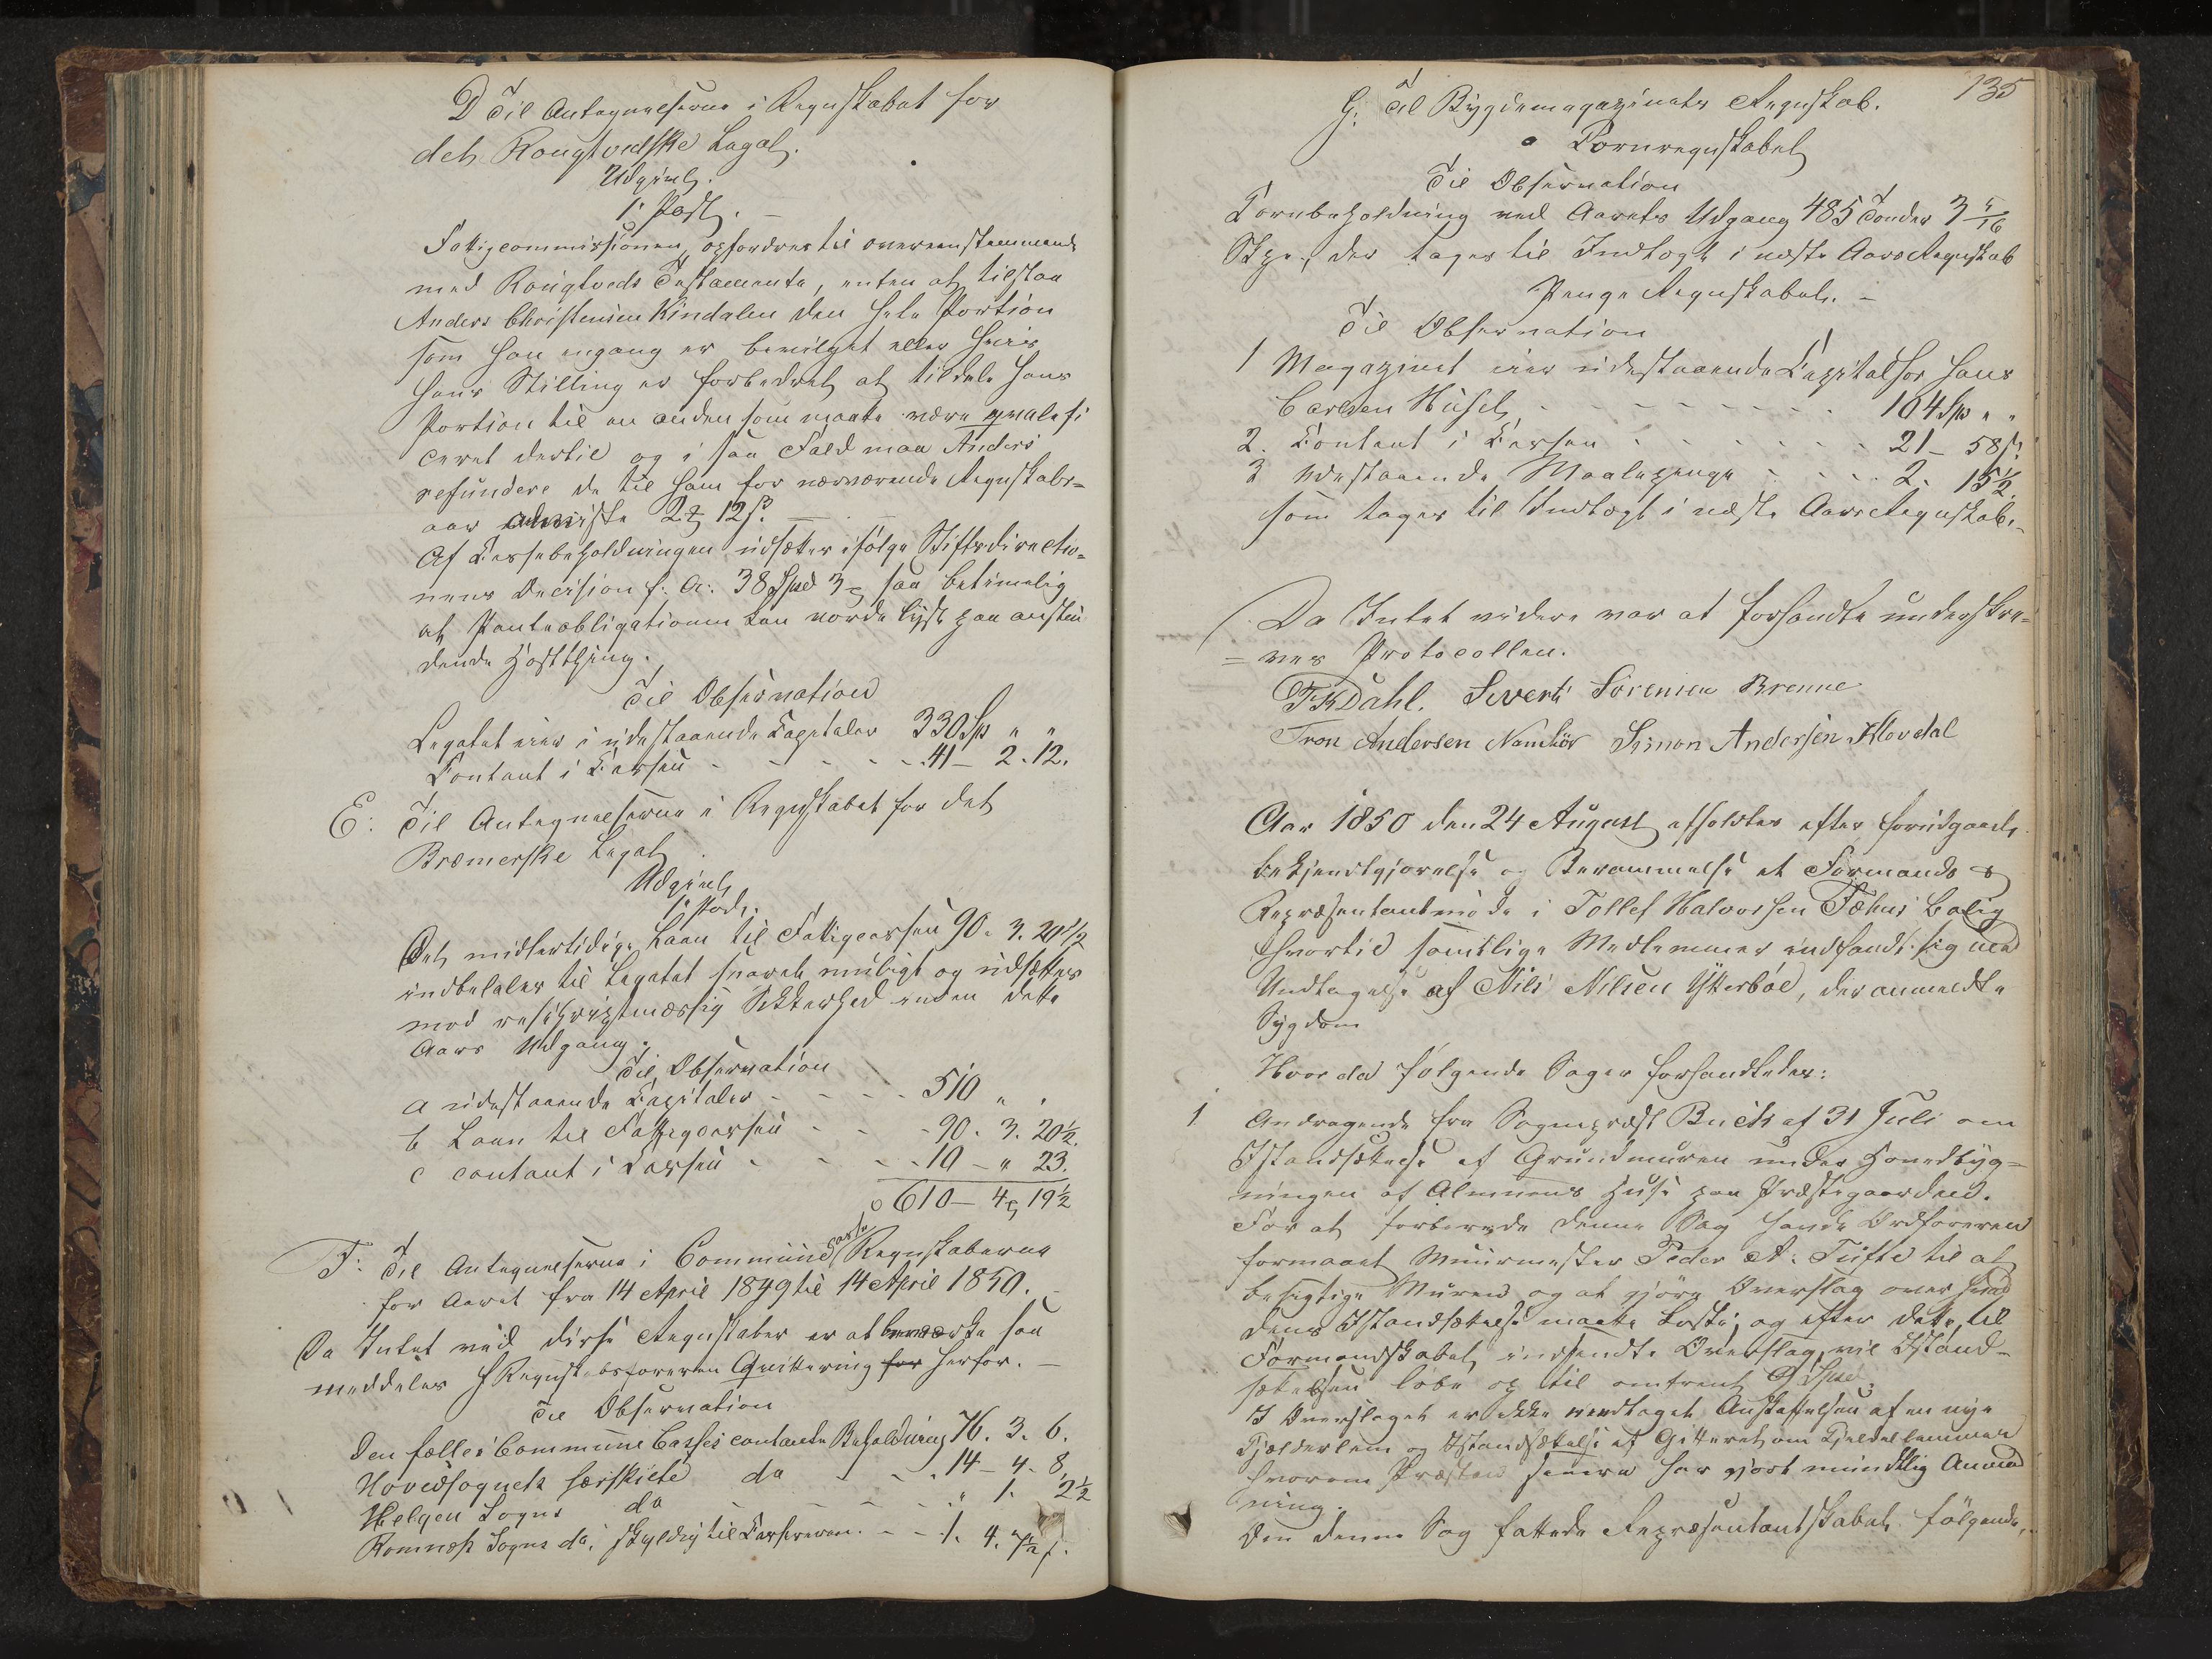 D Til Antegnelserne i Regnskabet for
det Rougtvedske Legat.
Udgivt.
1' Post.
Fattigcommissionen opfordres til overeenstemmende
med Rougtveds Testamente, enten at tilstaa
Anders Christensen Kindalen den hele Portion
som han engang er bevilget eller hvis
hans Stilling er forbedret at tildele hans
Portion til en anden som maate være qvalefi
ceret dertil og i saa Fald maa Anders
refundere de til ham for nærværende Regnskabs=
aar 12 s.
Af Cassebeholdningen udsættes ifølge Stiftsdirectio=
nens Decision f. A. 38 Spd 3 saa betimelig
at Panteobligationen kan vorde lyst paa anstun
dende Høstthing.
Til Observation
Legatet eier i udestaaende Capitaler 330 Sp " "
Contant i Cassen - - - - - 41 - 2. 12.
E: Til Antegnelserne i Regnskabet for det
Bræmerske Legat
Udgivt
1' Post.
Det midlertidige Laan til Fattigcassen 90. 3. 20 1/2
indbetales til Legatet snarest muligt og udsættes
mod rescriptmæssig Sikkerhed inden dette
Aars Udgang.
Til Observation
a udestaaende Capitaler - - - - 510 " "
b Laan til Fattigcassen - - - 90. 3. 20 1/2.
c contant i Cassen - - - - 10 - " 23.
610 - 4 19 1/2
F: Til Antegnelserne i Communecasse Regnskaberne
for Aaret fra 14 April 1849 til 14 April 1850.
Da Intet ved disse Regnskaber er at bemærke saa
meddeles Regnskabsføreren Qvittering for herfor. -
Til Observation
Den fælles Commune Casses contante Beholdning 76. 3. 6.
Hovedsognets særskilte do - - - 14 - 4. 8.
Helgen Sogns do - - - - " 1. 2 1/2
Romnæs Sogns do. skyldig til Cassereren. - - 1. 4. 7 1/2 s.
135
G: Til Bygdemagazinets Regnskab.
Kornregnskabet
Til Observation
Kornbeholdning ved Aarets Udgang 485 Tønder 3 /16
Skpr, der tages til Indtægt i næste Aars Regnskab
Penge Regnskabet. -
Til Observation
1 Magazinet eier udestaaende Capital hos Hans
Carlsen Huset - - - - - - 104 Sp " "
2. Contant i Cassen - - - - - - 21 - 58 s.
3 Udestaaende Maalepenge - - - - 2. 15 1/2.
som tages til Indtægt i næste Aars Regnskab. -
Da Intet videre var at forhandle underskre=
= ves Protocollen.
Dahl. Sivert Sörensen Brenne
Tron Andersen Namlös Simon Andersen Klovdal
Aar 1850 den 24 August afholdtes efter forudgaaede
bekjendtgjørelse og Berammelse et Formands &
Repræsentantmøde i Tollef Halvorsen Fæhus Bolig
hvortil samtlige Medlemmer indfandt sig med
Undtagelse af Nils Nilsen Ytterböe, der anmeldte
Sygdom
Hvor da følgende Sager forhandledes:
1 Andragende fra Sognepræst Buch af 31 Juli om
Istandsættelse af Grundmuren under Hovedbyg=
ningen af Almuens Huse paa Præstegaarden.
For at forberede denne Sag havde Ordføreren
formaaet Muurmester Peder A. Tufte til at
besigtige Muren og at gjøre Overslag over hvad
dens Istandsættelse maate koste; og efter dette, til
Formandskabet indsendte Overslag, vil Istand-
sættelsen løbe op til omtrent Spd.
I Overslaget er ikke medtaget Anskaffelsen af en nye
Kjælderlem og Istandsættelse af Gitteret om Kjelderlemmen
hvorom Præsten senere har gjort mundtlig Anmod
ning.
Om denne Sag fattede Repræsentantskabet følgende